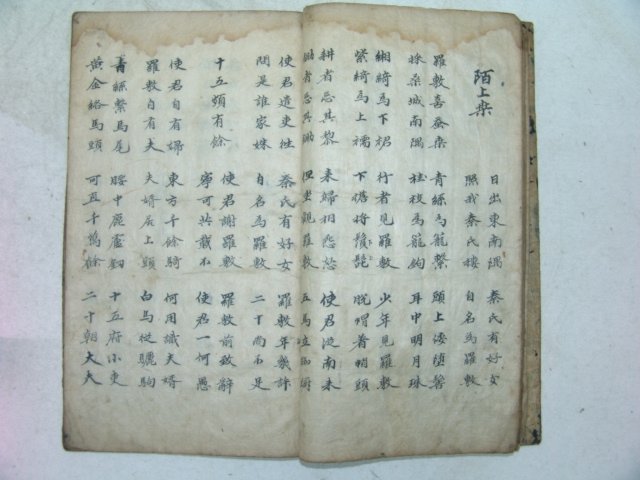 陌上桒
日出東南隅 秦氏有好女
照我秦氏樓 自名為羅敷
羅敷喜蚕桒 青絲為籠繫 頭上倭堕髻
採桑城南隅 桂枝為籠鉤 耳中明月珠
緗綺為下裙 行者見羅敷 少年見羅敷
紫綺為上襦 下擔捋鬚髭 脫帽著帩頭
耕者忘其黎 來歸相怨怒 使君從南來
鋤者忘其鋤 但坐觀羅敷 五馬立踟躕
使君遣吏往 秦氏有好女 羅敷年幾許
問是誰家姝 自名為羅敷 二十尚不足
十五頗有餘 使君謝羅敷 羅敷前致辭
寧可共載不 使君一何愚
使君自有婦 東方千餘騎 何用識夫婿
羅敷自有夫 夫婿居上頭 白馬從驪駒
青絲繫馬尾 腰中鹿盧劒 十五府小吏
黃金絡馬頭 可直千萬餘 二十朝大夫